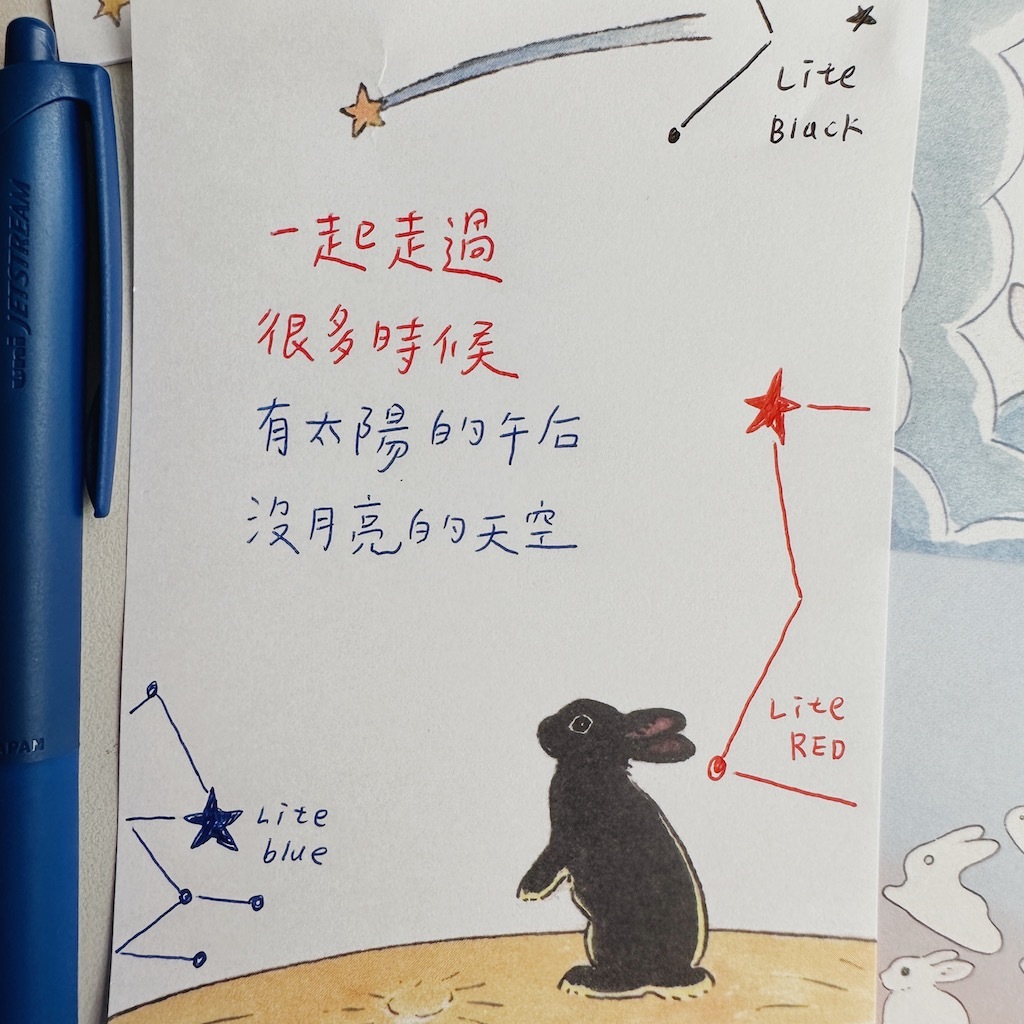 Lite
Black
一起走過
很多時候
有太陽的午后
沒月亮的天空
Lite
RED
Lite
blue
uni JETSTREAM
JAPAN